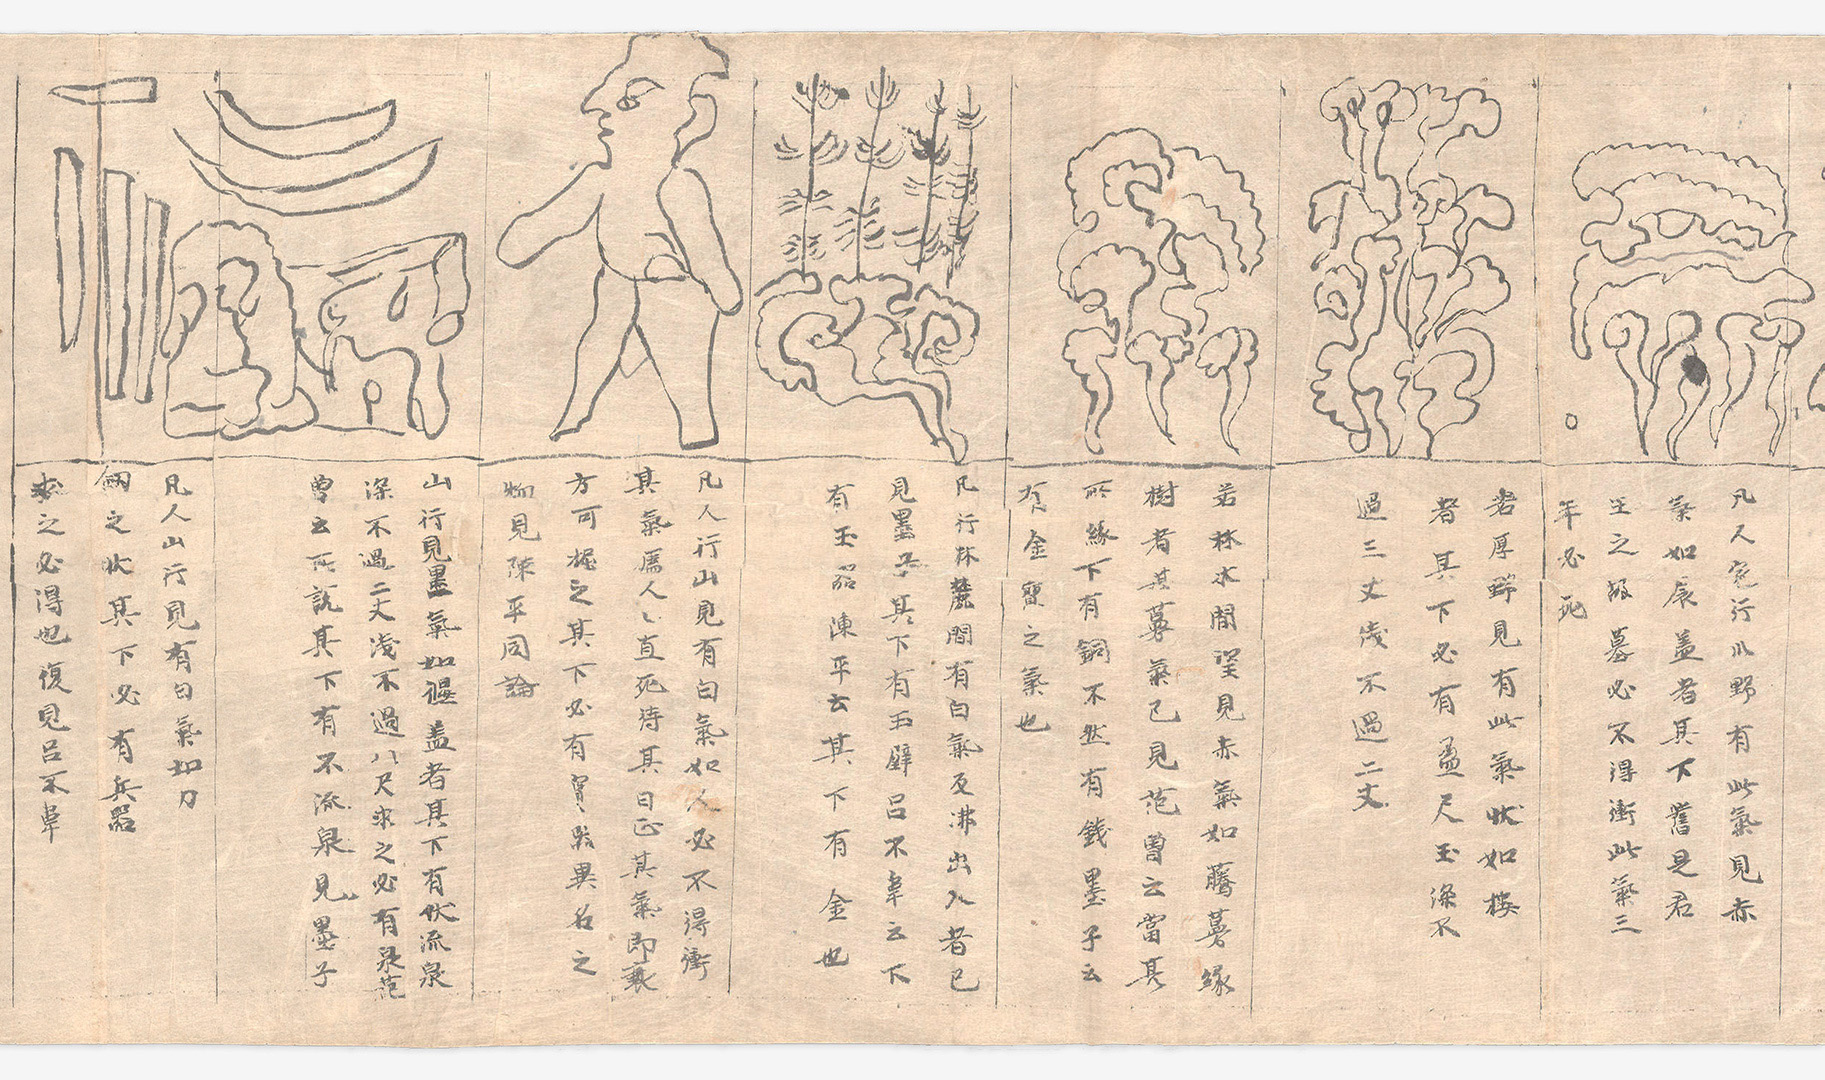 凡人宛行川野有此氣見赤
氣如辰盖者其下舊是君
王之
墓必不得衝此氣三
年必死
若厚野見有此氣状如樓
者其下必有盈尺玉深不
過三丈淺不過二丈
若林木間望見赤氣如騰蔓緣
樹者其蔓氣已見范曾云當其
所緣下有銅不然有錢墨子云
有金寶之氣也
凡行林麓間有白氣及沸出入者已
見墨子其下有玉辟吕不韋云下
有玉器陳平云其下有金也
凡人行山見有白氣如人必不得衝
其氣厲人〻直死待其日正其氣即衰
方可掘之其下必有寳
異名之
物見陳平同論
山行見墨氣如偃盖者其下有伏流泉
深不過二丈淺不過八尺求之必有泉范
曽云所説其下有不流泉見墨子
凡人山行見有白氣如刀
劒之状其下必有兵器
求之必得也復見吕不韋